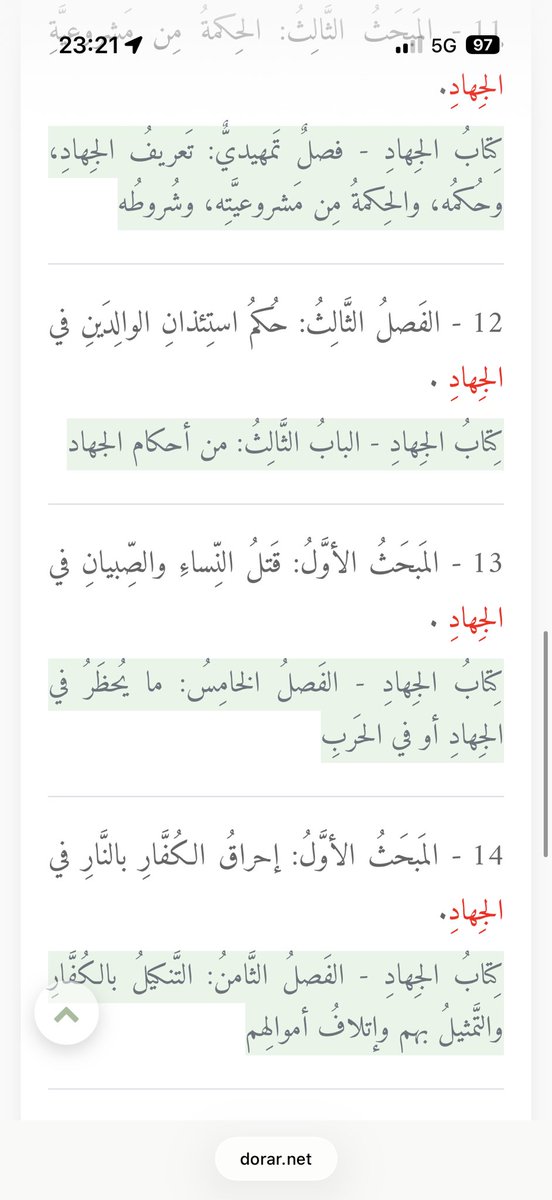 11 - المَبحَثُ الثَّالِثُ: الحِكمةُ مِن مَشروعيَّةِ
23:21
5G 97
الجِهادِ.
كِتابُ الجِهادِ - فصلٌ تَمهيديٌّ: تَعريفُ الجِهادِ،
وحُكمُه، والحِكمةُ مِن مَشروعيَّتِه، وشُروطُه
12 - الفَصلُ الثَّالِثُ: حُكمُ استِئذانِ الوالِدَينِ في
الجِهادِ .
كِتابُ الجِهادِ - البابُ الثَّالِثُ: من أحكام الجهاد
13 - المَبحَثُ الأوَّلُ: قَتلُ النِّساءِ والصِّبيانِ في
الجِهادِ .
كِتابُ الجِهادِ - الفَصلُ الخامِسُ: ما يُحظَرُ في
الجِهادِ أو في الحَربِ
14 - المَبحَثُ الأوَّلُ: إحراقُ الكُفَّارِ بالنَّارِ في
الجِهادِ.
كِتابُ الجِهادِ - الفَصلُ الثَّامنُ: التَّنكيلُ بالكُفَّارِ
والتَّمثيلُ بهم وإتلافُ أموالِهم
dorar.net